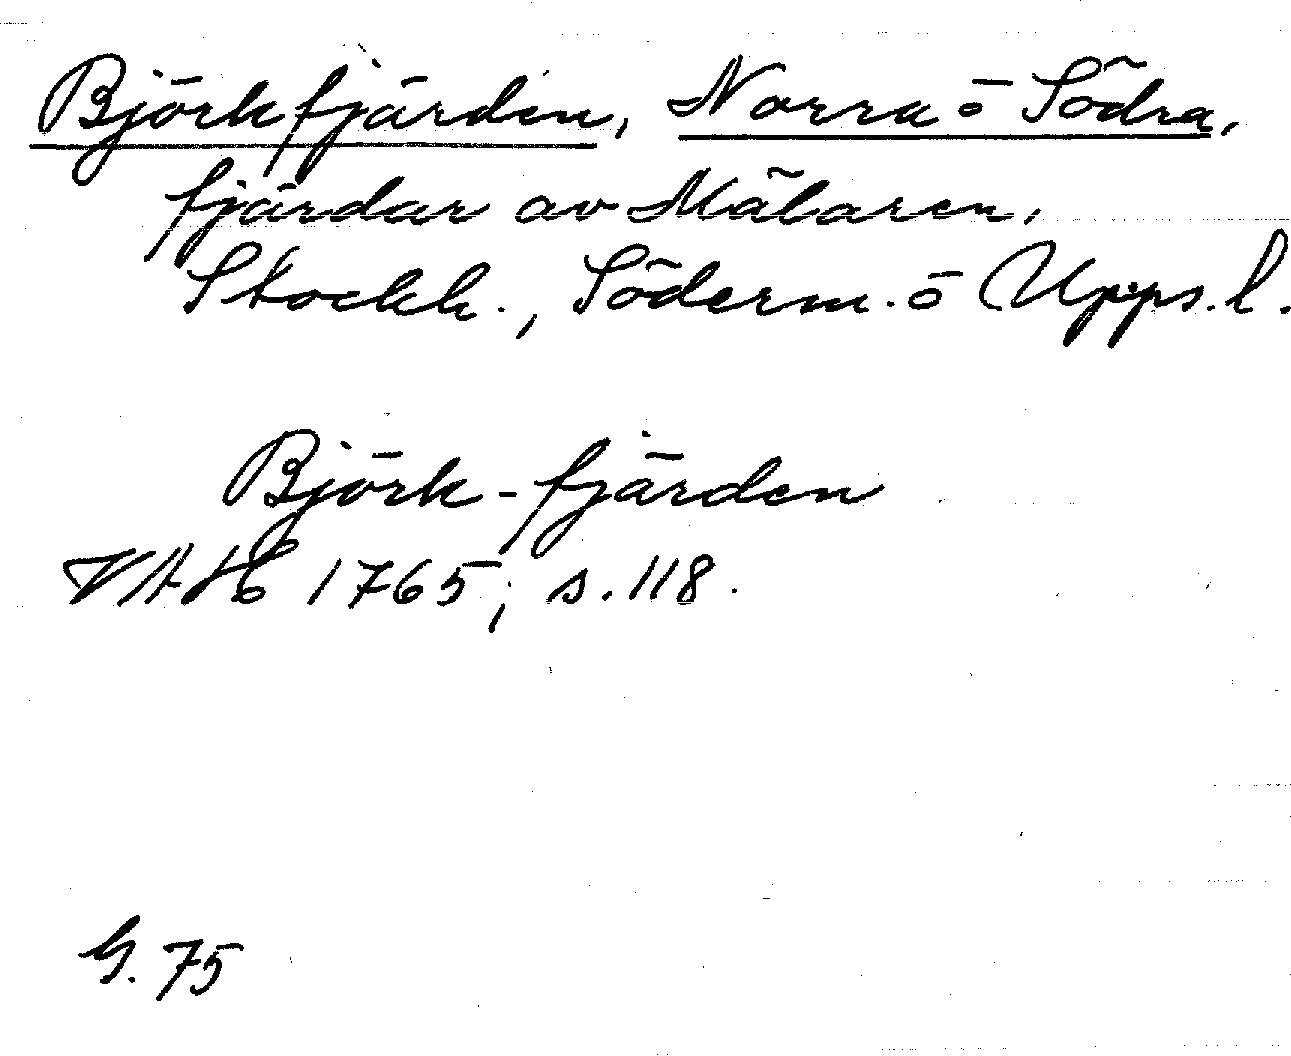 Björkfjärden, Norra ō Södra,
fjärdar av Mälaren,
Stockh., Söderm. ō Upps. l.
Björk-fjärden
VAH 1765, s. 118.
G. 75